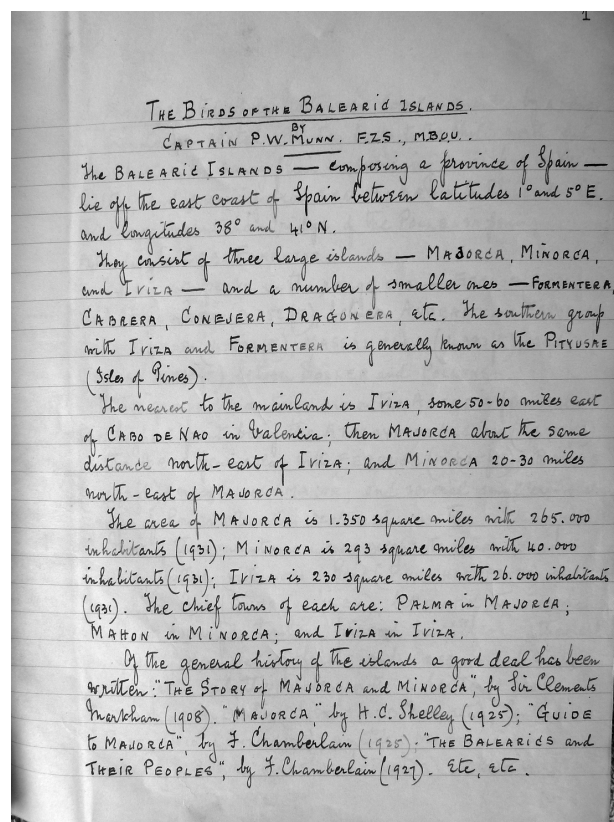 1
THE BIRDS OF THE BALEARIC ISLANDS.
BY
CAPTAIN P.W. MUNN. F.Z.S., M.B.O.U..
The BALEARIC ISLANDS — composing a province of Spain —
lie off the east coast of Spain between latitudes 1° and 5° E.
and longitudes 38° and 41° N.
They consist of three large islands — MAJORCA, MINORCA,
and IVIZA — and a number of smaller ones — FORMENTERA,
CABRERA, CONEJERA, DRAGONERA, etc. The southern group
with IVIZA and FORMENTERA is generally known as the PITYUSAE
(Isles of Pines).
The nearest to the mainland is IVIZA, some 50-60 miles east
of CABO DE NAO in Valentia; then MAJORCA about the same
distance north-east of IVIZA; and MINORCA 20-30 miles
north-east of MAJORCA.
The area of MAJORCA is 1.350 square miles with 265.000
inhabitants (1931); MINORCA is 293 square miles with 40.000
inhabitants (1931); IVIZA is 230 square miles with 26.000 inhabitants
(1931). The chief towns of each are: PALMA in MAJORCA;
MAHON in MINORCA; and IVIZA in IVIZA.
Of the general history of the islands a good deal has been
written: "THE STORY of MAJORCA and MINORCA", by Sir Clements
Markham (1908). "MAJORCA," by H.C. Shelley (1925); "GUIDE
to MAJORCA", by F. Chamberlain (1925); "THE BALEARICS and
THEIR PEOPLES", by F. Chamberlain (1927). Etc, etc.